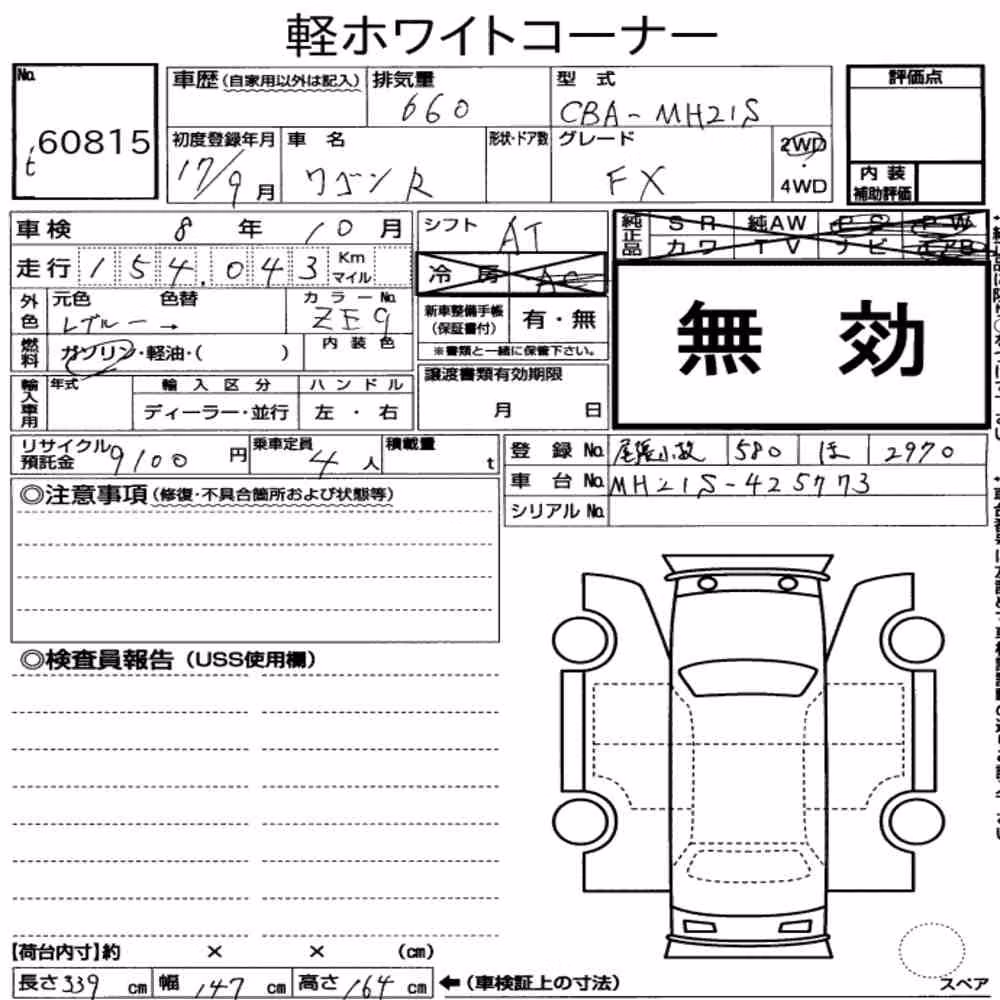 軽ホワイトコーナー
No.
t 60815
車歴(自家用以外は記入)
排気量
660
型 式
CBA-MH21S
評価点
初度登録年月
17/9月
車 名
ワゴンR
形状・ドア数
グレード
FX
2WD
・
4WD
内 装
補助評価
車検 8 年 10 月
シフト AT
純正品
SR 純AW PS PW
カワ TV ナビ エアB
走行 154,043 Km マイル
冷 房 AC
外色
元色 色替
Lブルー →
カラーNo.
ZE9
新車整備手帳
(保証書付)
有・無
※書類と一緒に保管下さい。
無 効
燃料
ガソリン・軽油・( )
内 装 色
輸入車用
年式
輸 入 区 分
ハ ン ド ル
ディーラー・並行
左 ・ 右
譲渡書類有効期限
月 日
リサイクル
預託金 9100 円
乗車定員
4 人
積載量
t
登 録 No. 尾張小牧 580 ほ 2970
車 台 No. MH21S-425773
シリアル No.
◎注意事項(修復・不具合箇所および状態等)
◎検査員報告(USS使用欄)
【荷台内寸】約 × × (cm)
長さ 339 cm 幅 147 cm 高さ 164 cm
←(車検証上の寸法)
スペア